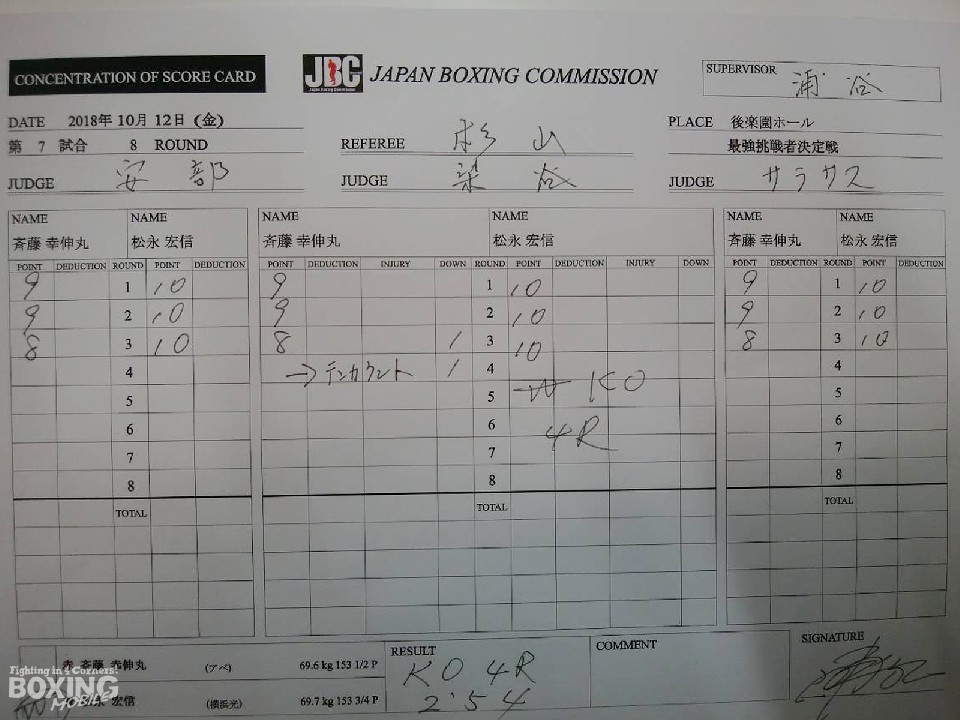 CONCENTRATION OF SCORE CARD
JBC JAPAN BOXING COMMISSION
SUPERVISOR 浦谷
DATE 2018年 10月 12日 (金)
PLACE 後楽園ホール
第 7 試合 8 ROUND
REFEREE 杉山
最強挑戦者決定戦
JUDGE 安部
JUDGE 染谷
JUDGE サラサス
NAME NAME NAME NAME NAME NAME
斉藤 幸伸丸 松永 宏信 斉藤 幸伸丸 松永 宏信 斉藤 幸伸丸 松永 宏信
POINT DEDUCTION ROUND POINT DEDUCTION POINT DEDUCTION INJURY DOWN ROUND POINT DEDUCTION INJURY DOWN POINT DEDUCTION ROUND POINT DEDUCTION
9 1 10 9 1 10 9 1 10
9 2 10 9 2 10 9 2 10
8 3 10 8 1 3 10 8 3 10
4 →テンカウント 1 4 4
5 5 KO 5
6 6 4R 6
7 7 7
8 8 8
TOTAL TOTAL TOTAL
斉藤 幸伸丸 (アベ) 69.6 kg 153 1/2 P
宏信 (横浜光) 69.7 kg 153 3/4 P
RESULT
KO 4R
2'54
COMMENT
SIGNATURE
Fighting in 4 Corners.
BOXING
MOBILE